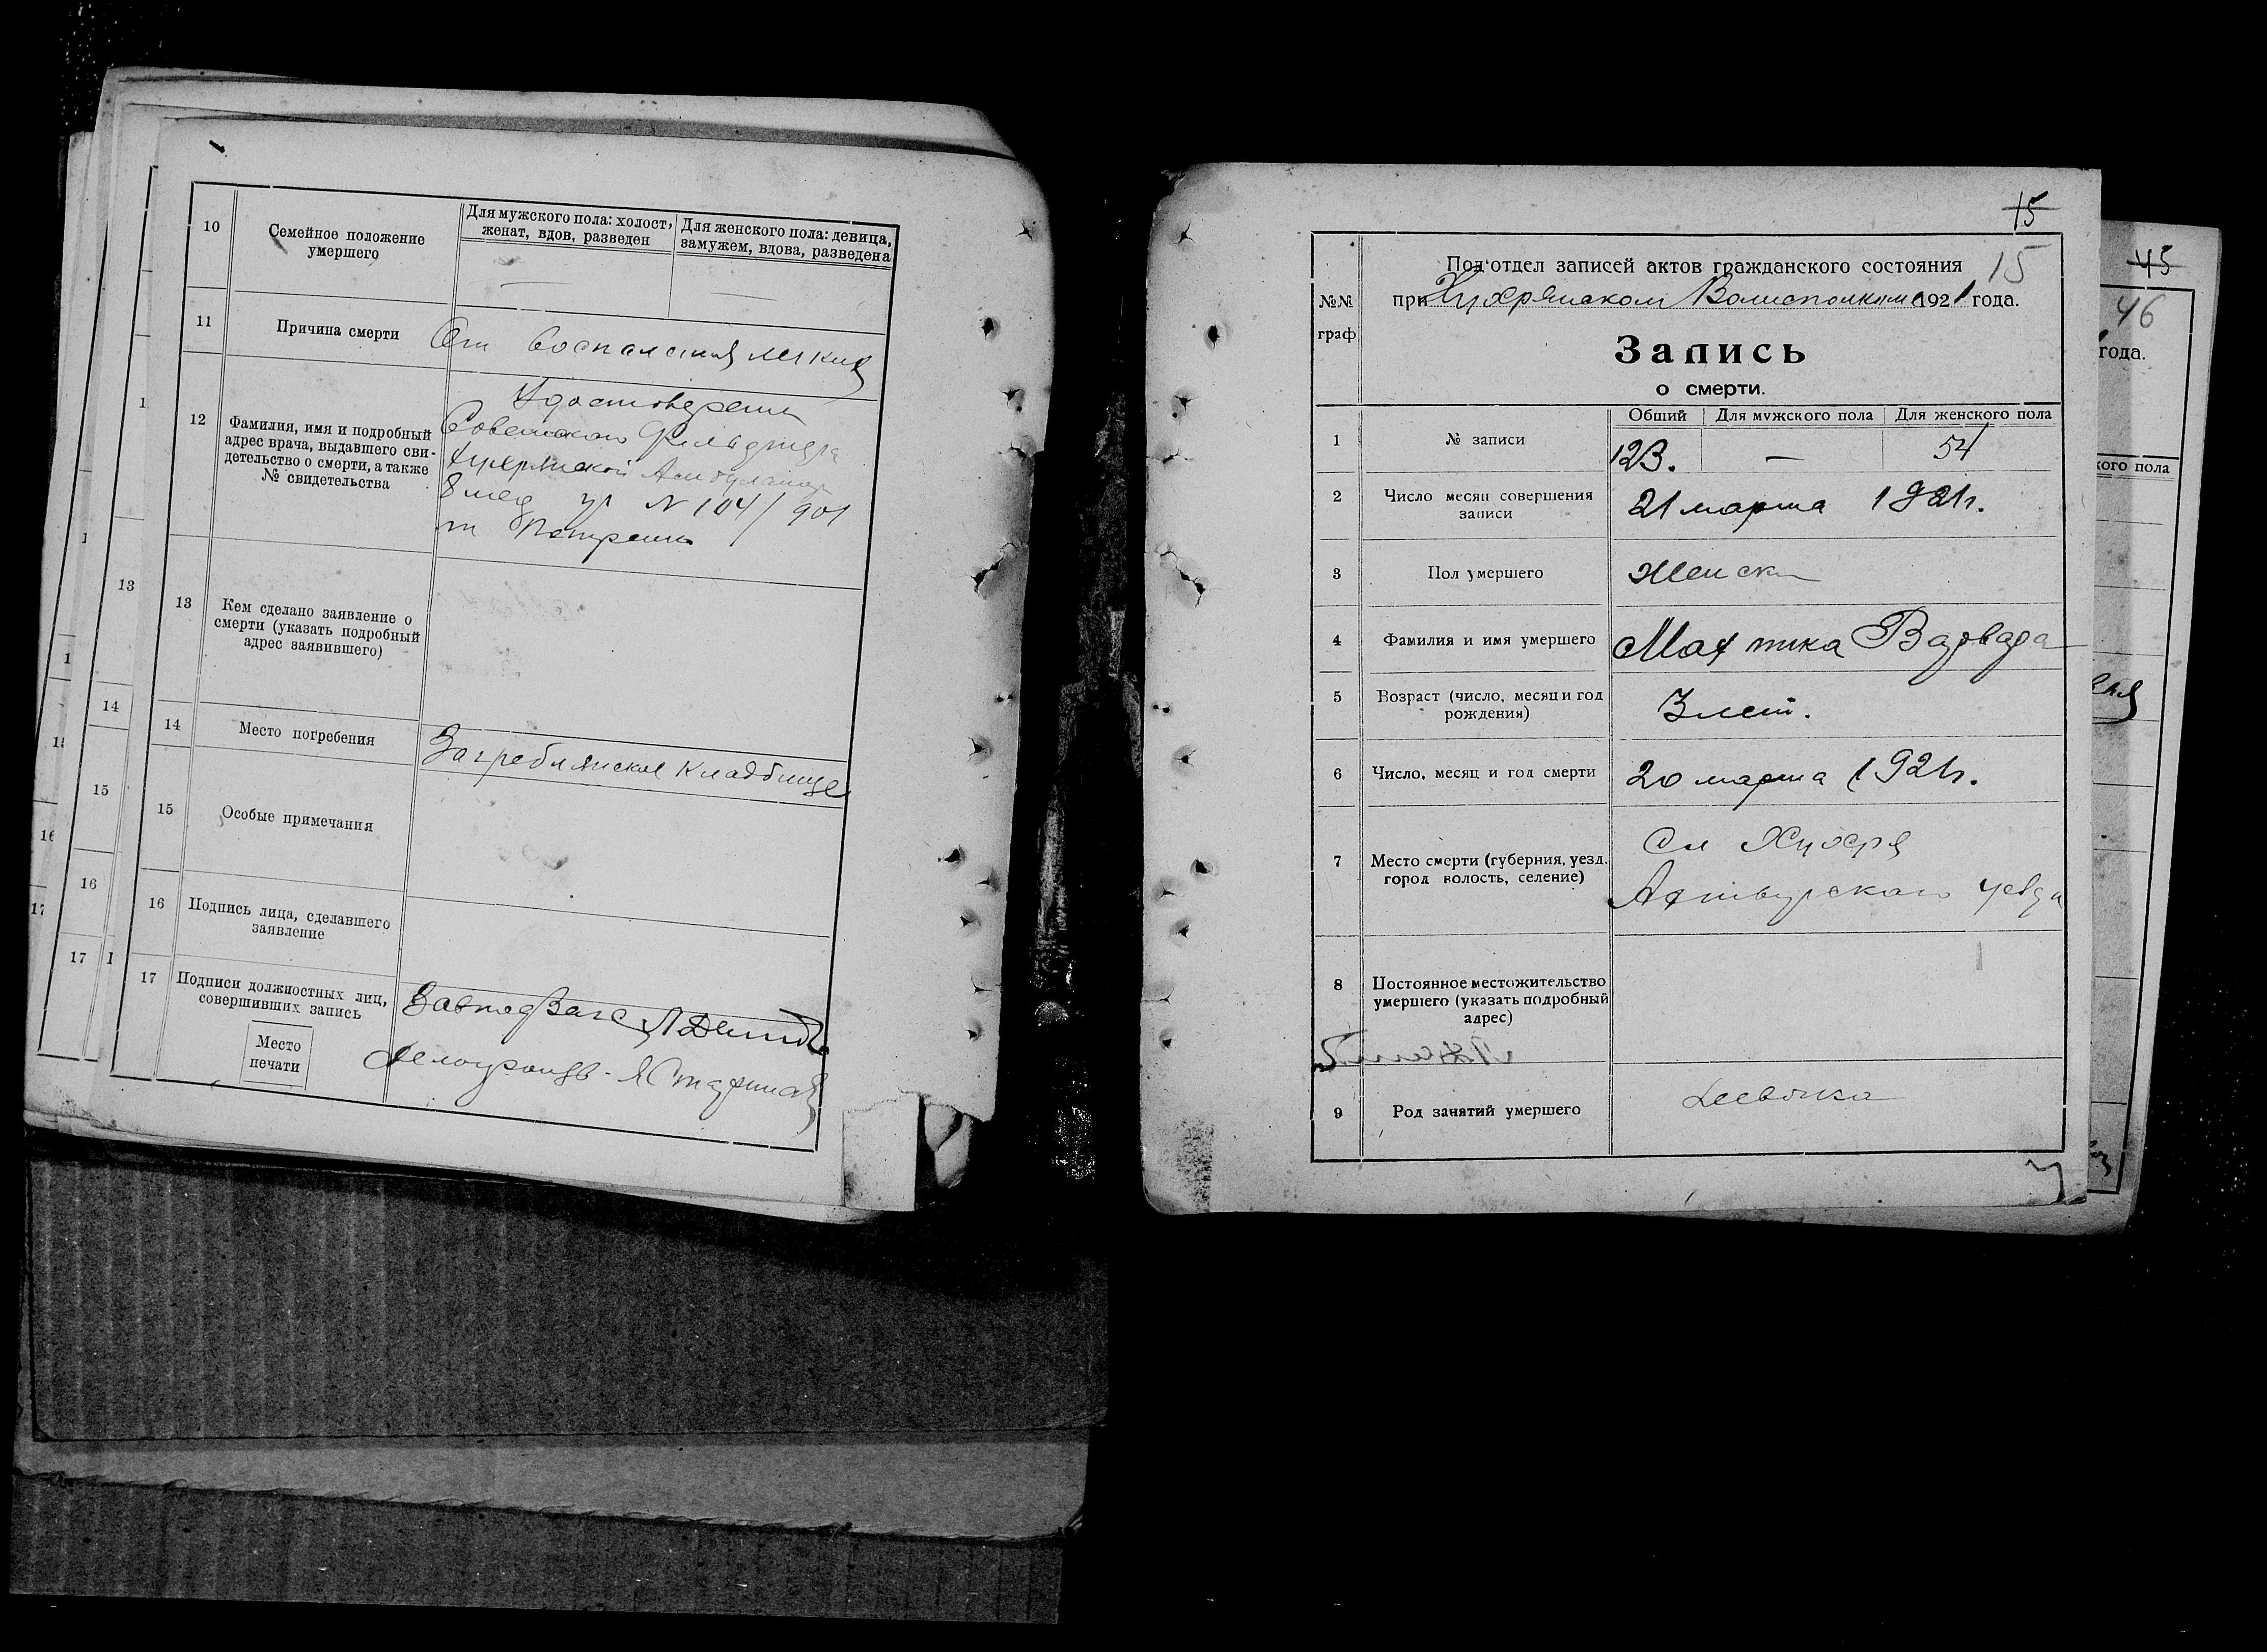 10
Семейное положение
умершего
Для мужского пола: холост,
женат, вдов, разведен
Для женского пола: девица,
замужем, вдова, разведена
—
—
11
Причина смерти
От воспаления легких
12
Фамилия, имя и подробный
адрес врача, выдавшего сви-
детельство о смерти, а также
№ свидетельства
Удостоверение
Советского Фельдшера
Хухрянской Амбулатории
8 мед уч N 104/901
13
Кем сделано заявление о
смерти (указать подробный
адрес заявившего)
14
Место погребения
Загреблянское Кладбище
15
Особые примечания
16
Подпись лица, сделавшего
заявление
17
Подписи должностных лиц,
совершивших запись
Место
печати
13
14
15
16
17
15
Под‘отдел записей актов гражданского состояния
15
№№
граф
при Хухрянском Волисполкоме 1921 года.
Запись
о смерти.
1
№ записи
Общий
Для мужского пола
Для женского пола
123.
—
54
2
Число месяц совершения
записи
21 марта 1921 г.
3
Пол умершего
Женск
4
Фамилия и имя умершего
Махтка Варвара
5
Возраст (число, месяц и год
рождения)
3 лет.
6
Число, месяц и год смерти
20 марта 1921 г.
7
Место смерти (губерния, уезд,
город волость, селение)
Сл Хухря
Ахтырского уезда
8
Постоянное местожительство
умершего (указать подробный
адрес)
9
Род занятий умершего
45
46
года.
кого пола